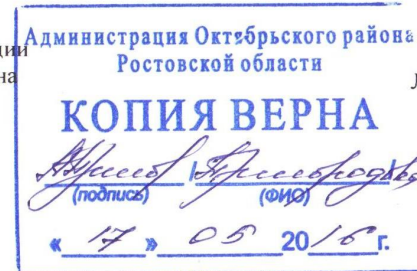 ции
на
Администрация Октябрьского района
Ростовской области
КОПИЯ ВЕРНА
(подпись) (ФИО)
« 17 » 05 2016 г.